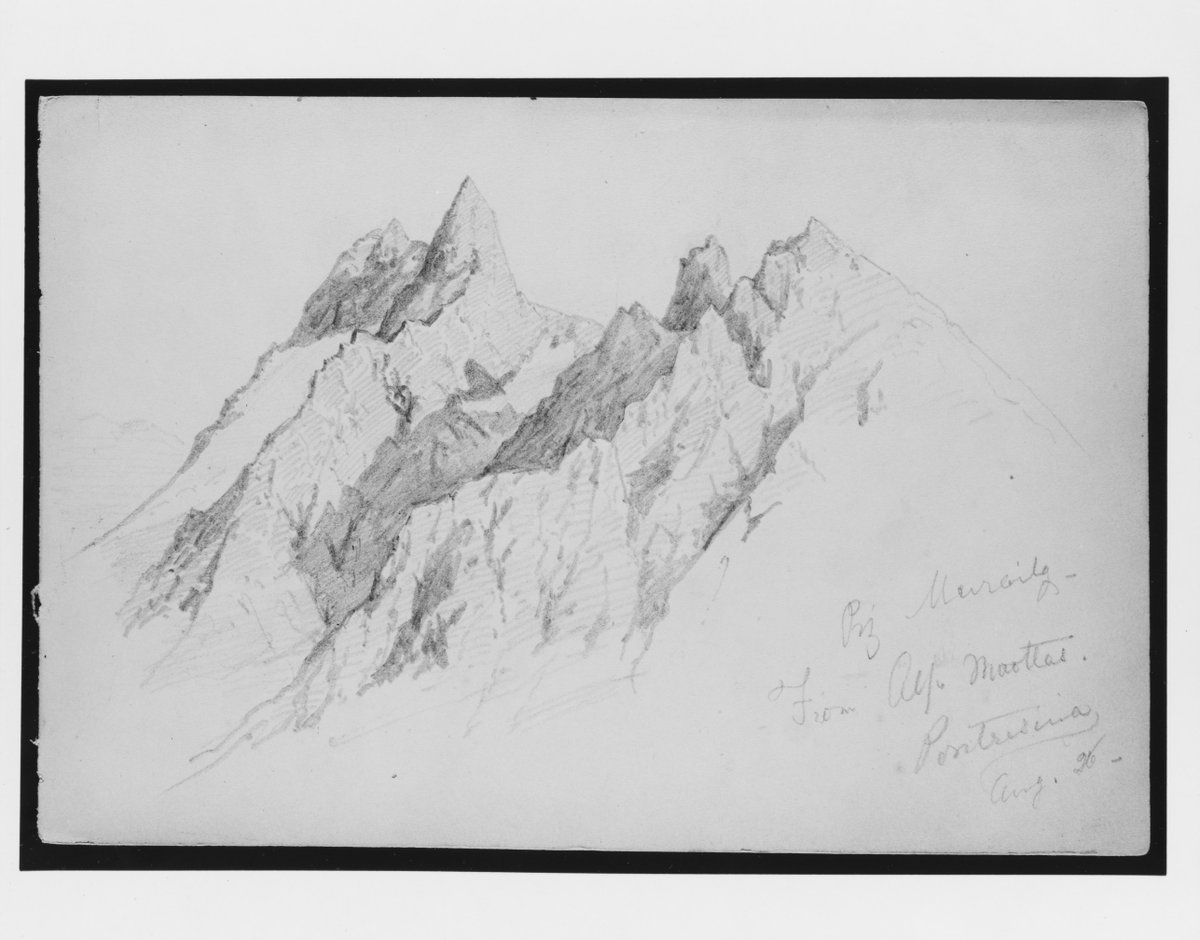 Piz
From Alp Muottas.
Pontresina,
Aug. 26 -